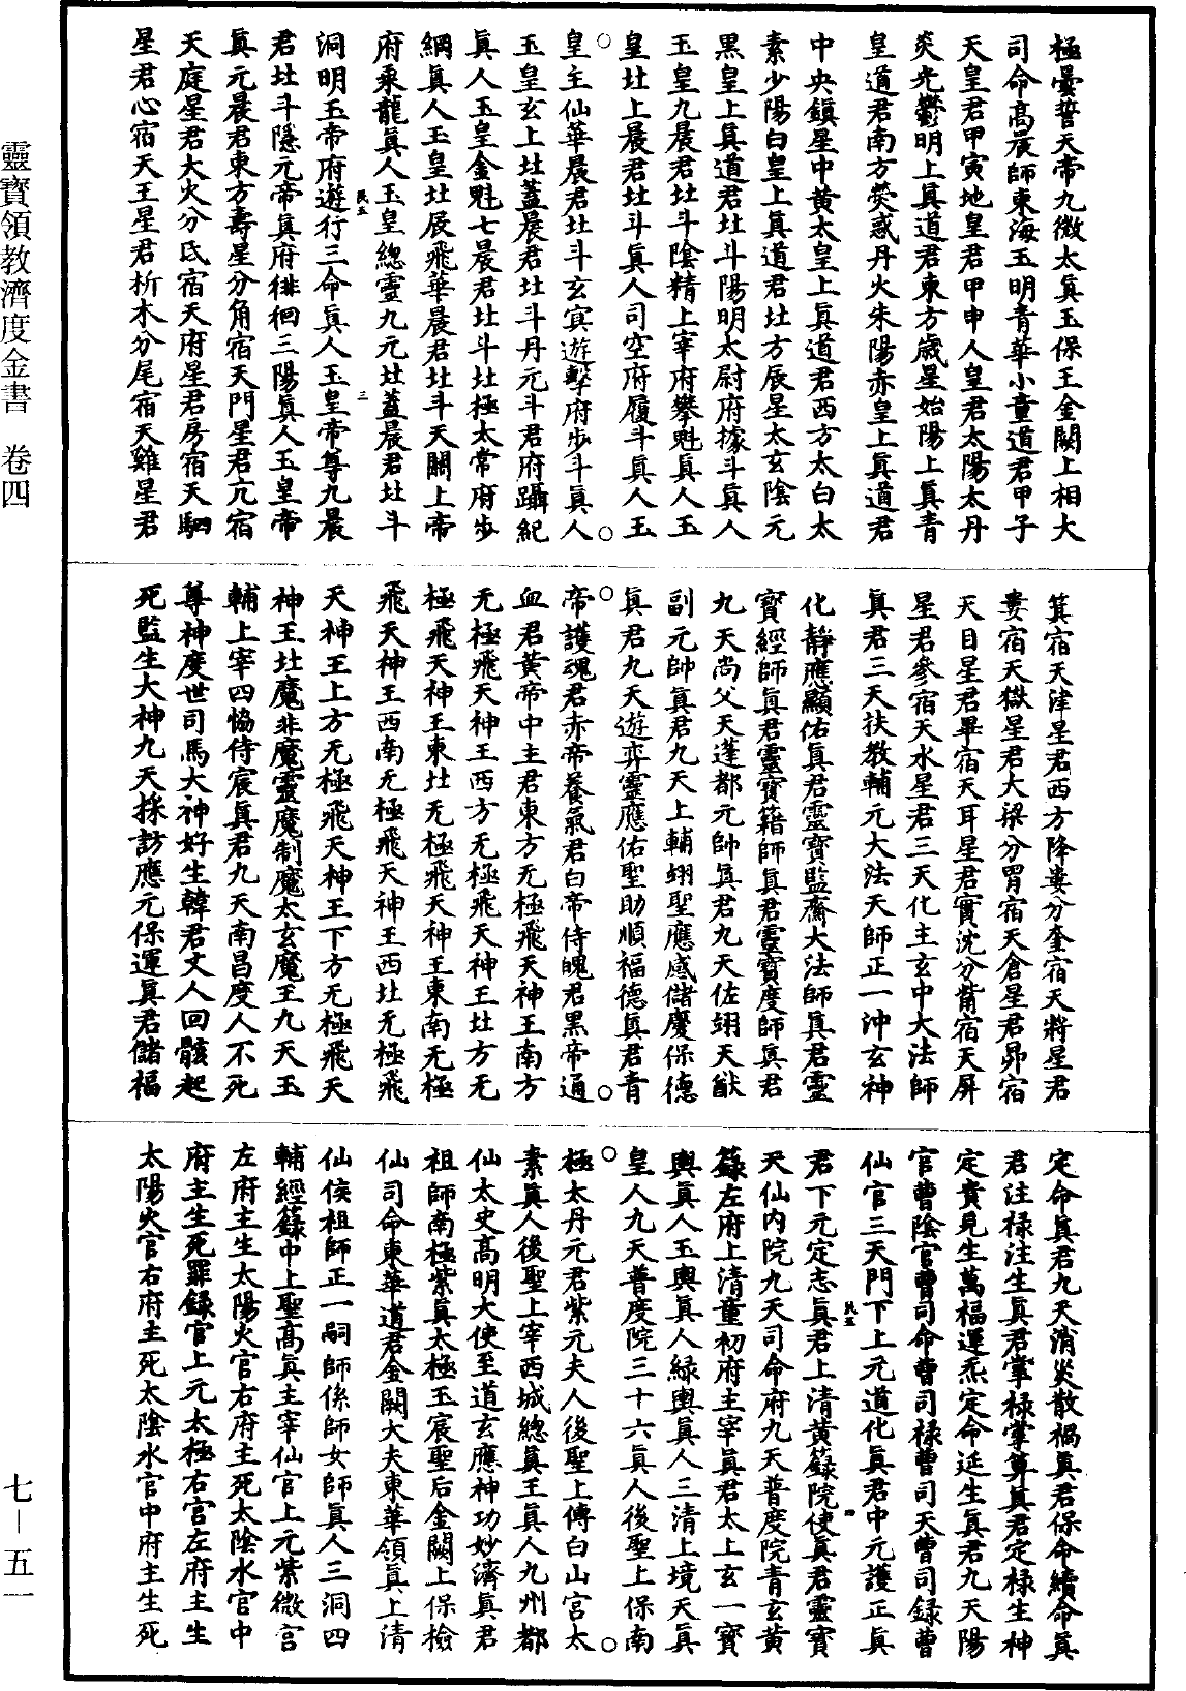 靈寶領教濟度金書　卷四
極曇誓天帝九微太眞玉保王金闕上相大
司命高晨師東海玉明青華小童道君甲子
天皇君甲寅地皇君甲申人皇君太陽太丹
炎光鬱明上眞道君東方歲星始陽上眞青
皇道君南方熒惑丹火朱陽赤皇上眞道君
中央鎮星中黄太皇上眞道君西方太白太
素少陽白皇上眞道君北方辰星太玄陰元
黑皇上眞道君北斗陽明太尉府據斗眞人
玉皇九晨君北斗陰精上宰府攀魁眞人玉
皇北上晨君北斗眞人司空府履斗眞人玉
皇主仙華晨君北斗玄冥遊擊府步斗眞人
玉皇玄上北蓋晨君北斗丹元斗君府躡紀
眞人玉皇金魁七晨君北斗北極太常府步
綱眞人玉皇北辰飛華晨君北斗天關上帝
府乘龍眞人玉皇總靈九元北蓋晨君北斗
洞明玉帝府遊行三命眞人玉皇帝尊九晨
君北斗隱元帝眞府徘徊三陽眞人玉皇帝
眞元晨君東方壽星分角宿天門星君亢宿
天庭星君大火分氐宿天府星君房宿天駟
星君心宿天王星君析木分尾宿天雞星君
箕宿天津星君西方降婁分奎宿天將星君
婁宿天獄星君大梁分胃宿天倉星君昴宿
天目星君畢宿天耳星君實沈分觜宿天屏
星君參宿天水星君三天化主玄中大法師
眞君三天扶教輔元大法天師正一沖玄神
化靜應顯佑眞君靈寶監齋大法師眞君靈
寶經師眞君靈寶籍師眞君靈寶度師眞君
九天尚父天蓬都元帥眞君九天佐翊天猷
副元帥眞君九天上輔翊聖應感儲慶保德
眞君九天遊弈靈應佑聖助順福德眞君青
帝護魂君赤帝養氣君白帝侍魄君黑帝通
血君黃帝中主君東方无極飛天神王南方
无極飛天神王西方无極飛天神王北方无
極飛天神王東北无極飛天神王東南无極
飛天神王西南无極飛天神王西北无極飛
天神王上方无極飛天神王下方无極飛天
神王北魔非魔靈魔制魔太玄魔王九天玉
輔上宰四恊侍宸眞君九天南昌度人不死
尊神度世司馬大神好生韓君丈人回骸起
死監生大神九天採訪應元保運眞君儲福
定命眞君九天消災散禍眞君保命續命眞
君注禄注生眞君掌禄掌算眞君定禄生神
定貴見生萬福運炁定命延生眞君九天陽
官曹陰官曹司命曹司禄曹司天曹司録曹
仙官三天門下上元道化眞君中元護正眞
君下元定志眞君上清黄籙院使眞君靈寶
天仙内院九天司命府九天普度院青玄黄
籙左府上清童初府主宰眞君太上玄一寶
輿眞人玉輿眞人緑輿眞人三清上境天眞
皇人九天普度院三十六眞人後聖上保南
極太丹元君紫元夫人後聖上傅白山宮太
素眞人後聖上宰西城總眞王眞人九州都
仙太史高明大使至道玄應神功妙濟眞君
祖師南極紫眞太極玉宸聖后金闕上保檢
仙司命東華道君金闕大夫東華領眞上清
仙侯祖師正一嗣師係師女師眞人三洞四
輔經籙中上聖高眞主宰仙官上元紫微宮
左府主生太陽火官右府主死太陰水官中
府主生死罪録官上元太極右宮左府主生
太陽火官右府主死太陰水官中府主生死
七—五一